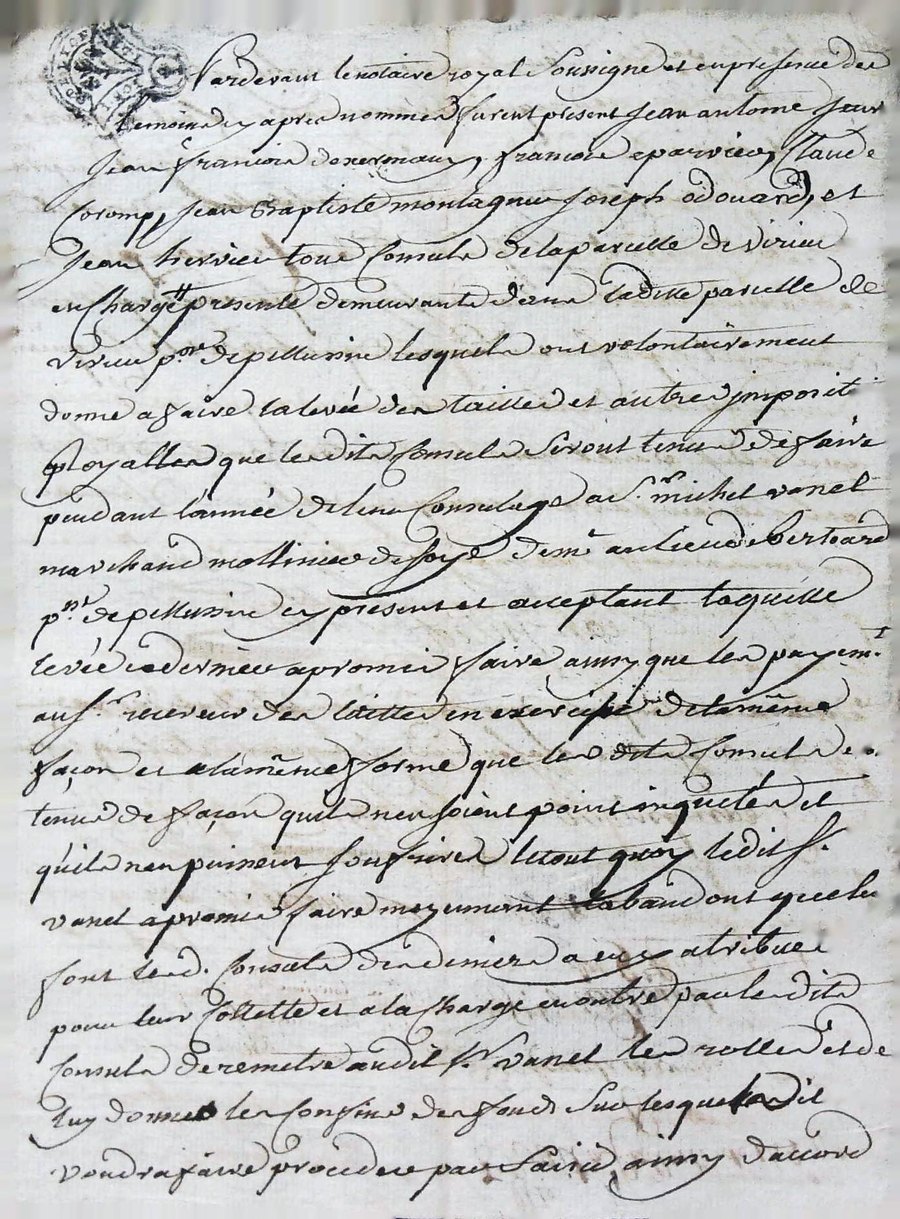 Pardevant le notaire royal soussigne et en presence des
temoins cy apres nommes furent present Jean antoine
Jean francois francois eparvier, Claude
Colomp, Jean Baptiste montagnier Joseph odouard, et
Jean hervier tous Consuls de la parcelle de virieu
en Charge presente demeurants dans ladite parcelle de
virieu p.sse de pellussin lesquels ont volontairement
donne a faire la levée des tailles et autres imposit.
Royalles que lesdits Consuls seront tenus de faire
pendant l'année de leur Consulage a s.r michel vanel
marchand mollinier de soye dem.t au lieu de bertoard
p.sse de pellussin cy present et acceptant laquelle
levée ce dernier a promis faire ainsy que les payem.t
au s.r receveur des tailles en exercise de la même
façon et a la même forme que lesdits Consuls
tenus de façon quils n'en soient point inquietés et
quils n'en puissent souffrire le tout quoy ledit s.r
vanel a promis faire moyennant l'abandont que luy
font lesd. Consuls des deniers a eux atribues
pour leur Collette et a la Charge en outre par lesdits
Consuls de remetre audit s.r vanel les rolles et de
luy donner les Confins des fonds sur lesquels ledit
voudra faire proceder par saisie, ainsy d'accord